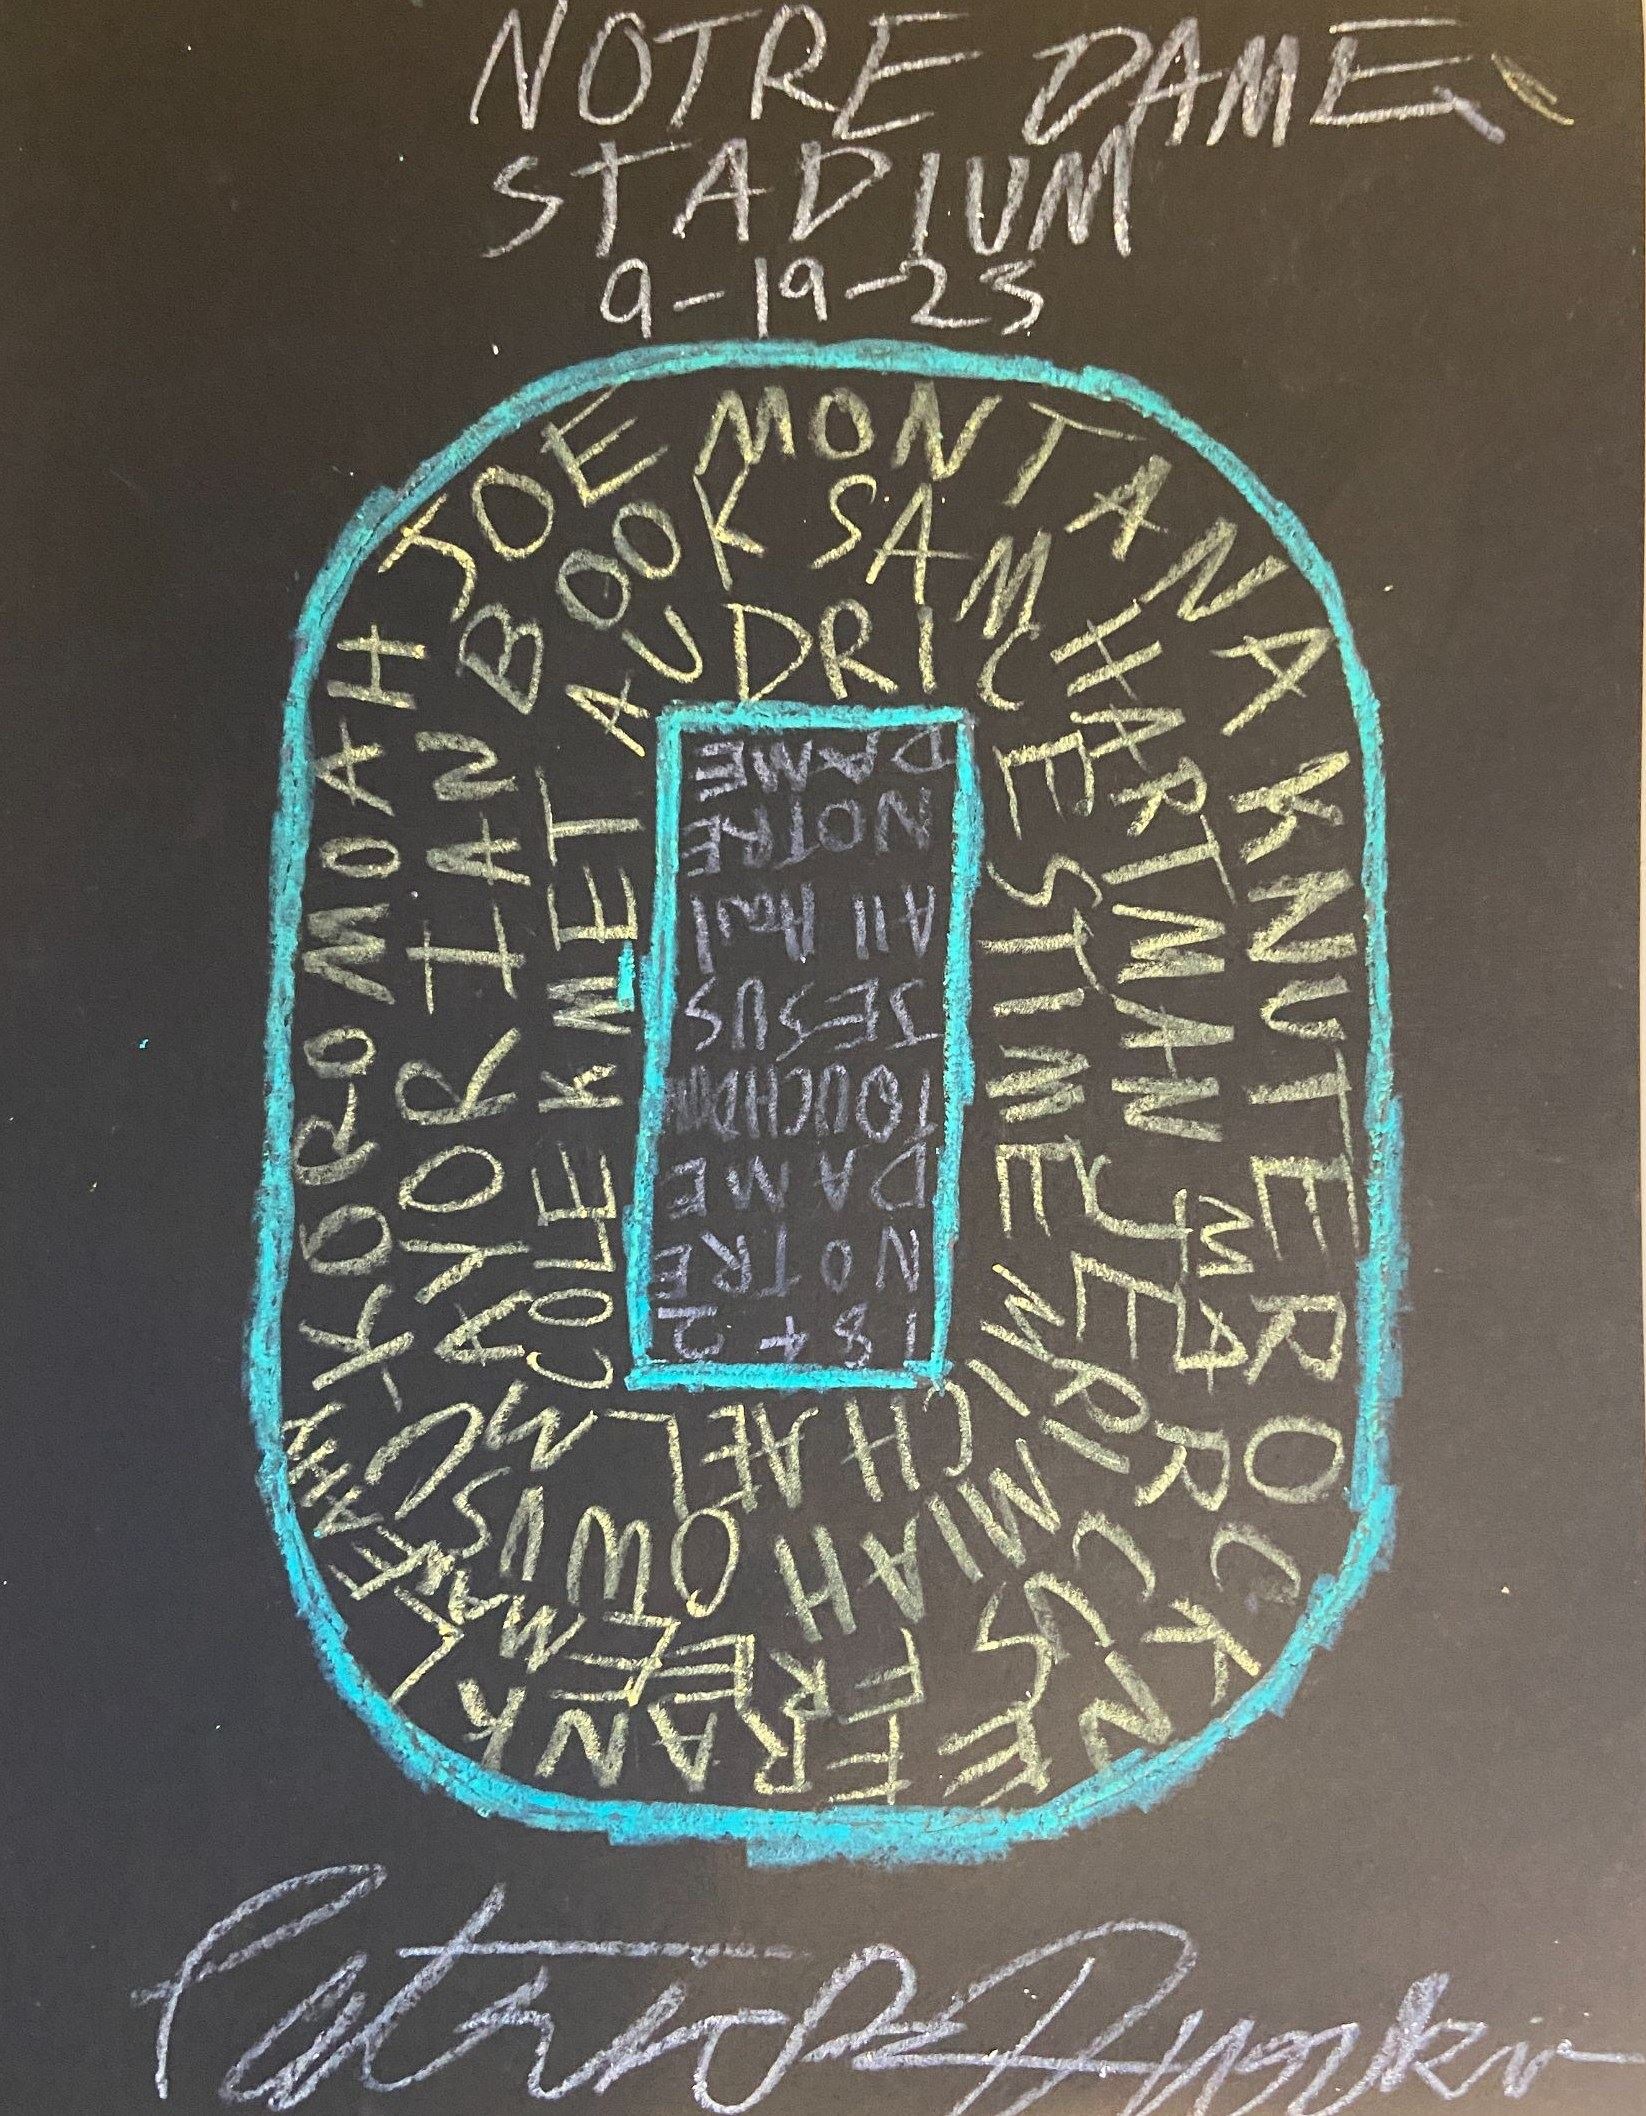 NOTRE DAME
STADIUM
9-19-23
JOE MONTANA
KNUTE ROCKNE
FRANK LEAHY
IAN BOOK
SAM HARTMAN
MARCUS FREEMAN
JERIMIAH OWUSU-KOROMOAH
AUDRIC ESTIME
MICHAEL MAYOR
COLE KMET
1842
NOTRE
DAME
TOUCHDOWN
JESUS
All Hail
NOTRE
DAME
Patrick